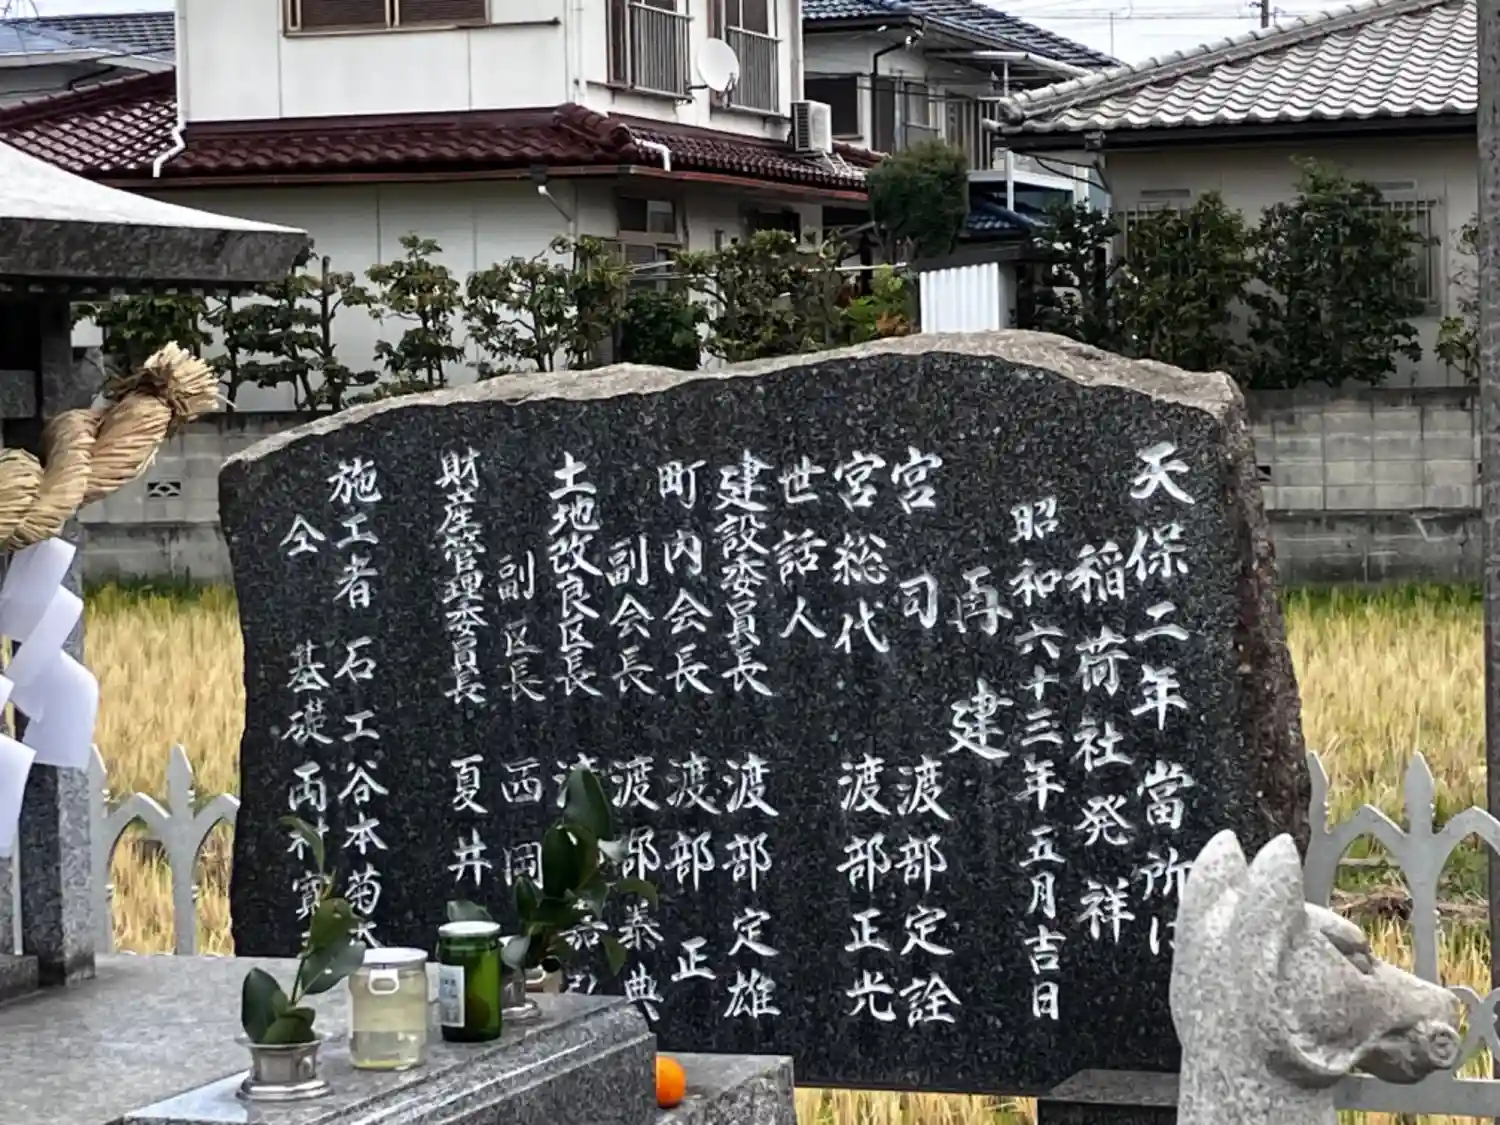 天保二年當所に
稲荷社発祥
昭和六十三年五月吉日
再建
宮司 渡部定詮
宮総代 渡部正光
世話人
建設委員長 渡部定雄
町内会長 渡部正
副会長 渡部泰典
土地改良区長 渡
副区長 西岡
財産管理委員長 夏井
施工者 石工谷本菊
仝 基礎両村寅